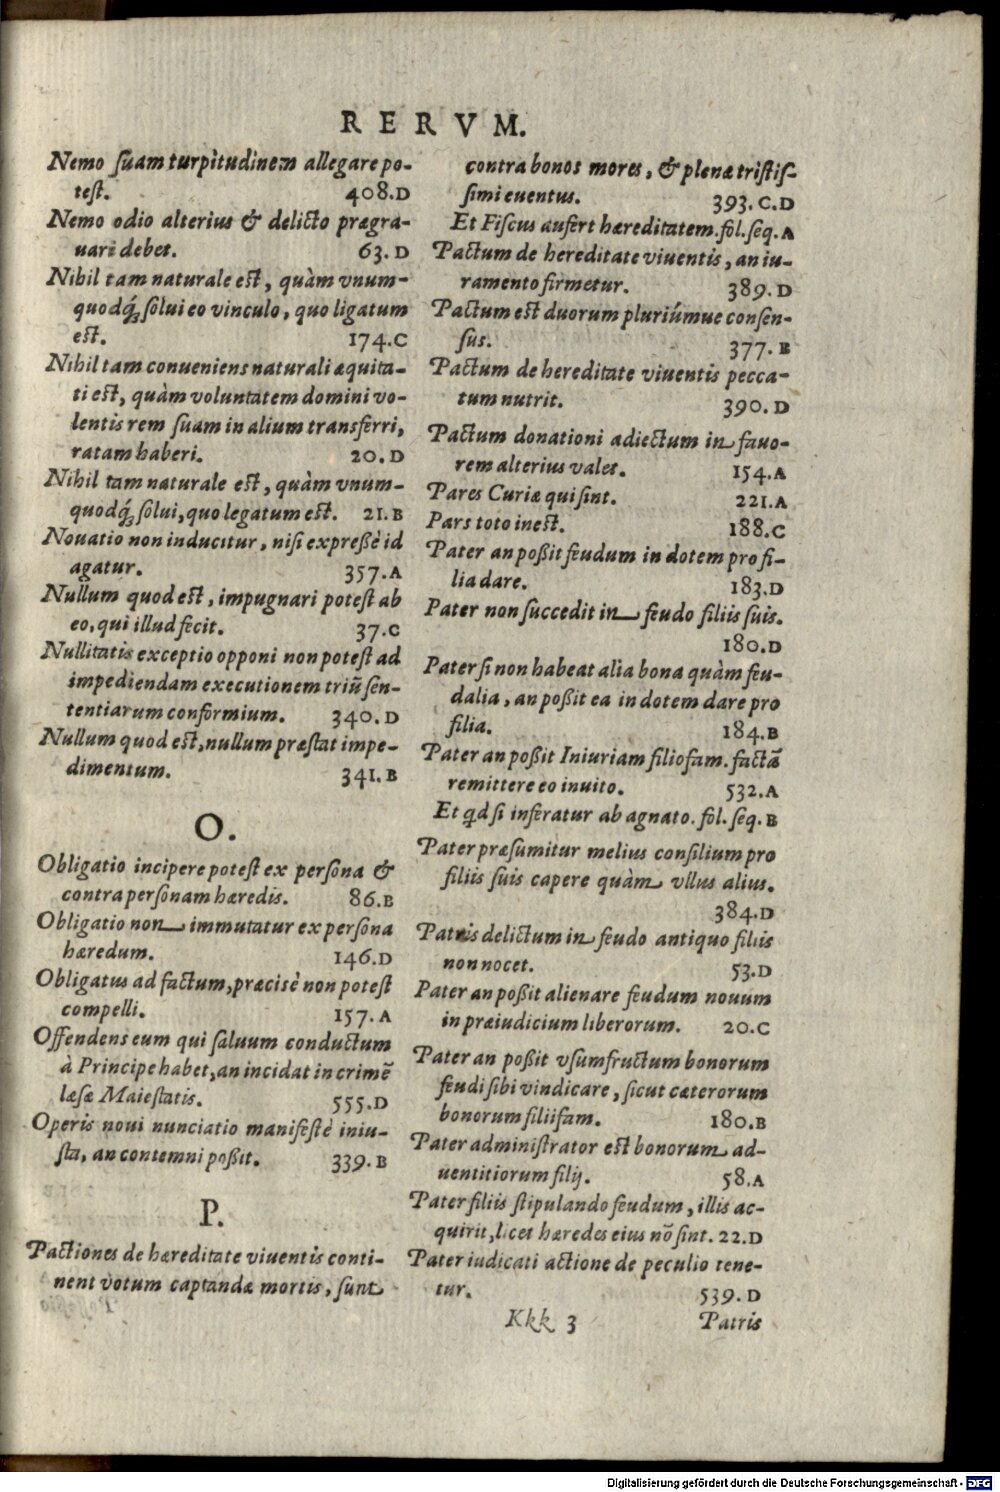 RERVM.
Nemo suam turpitudinem allegare po-
test. 408.D
Nemo odio alterius & delicto prægra-
uari debet. 63.D
Nihil tam naturale est, quàm vnum-
quodq́ꝫ solui eo vinculo, quo ligatum
est. 174.C
Nihil tam conueniens naturali æquita-
ti est, quàm voluntatem domini vo-
lentis rem suam in alium transferri,
ratam haberi. 20.D
Nihil tam naturale est, quàm vnum-
quodq́ꝫ solui, quo legatum est. 21.B
Nouatio non inducitur, nisi expreßè id
agatur. 357.A
Nullum quod est, impugnari potest ab
eo, qui illud fecit. 37.C
Nullitatis exceptio opponi non potest ad
impediendam executionem triũ sen-
tentiarum conformium. 340.D
Nullum quod est, nullum præstat impe-
dimentum. 341.B
O.
Obligatio incipere potest ex persona &
contra personam hæredis. 86.B
Obligatio non immutatur ex persona
hæredum. 146.D
Obligatus ad factum, præcisè non potest
compelli. 157.A
Offendens eum qui saluum conductum
à Principe habet, an incidat in crimẽ
læsæ Maiestatis. 555.D
Operis noui nunciatio manifestè iniu-
sta, an contemni poßit. 339.B
P.
Pactiones de hæreditate viuentis conti-
nent votum captandæ mortis, sunt
contra bonos mores, & plenæ tristis-
simi euentus. 393.C.D
Et Fiscus aufert hæreditatem. fol. seq. A
Pactum de hereditate viuentis, an iu-
ramento firmetur. 389.D
Pactum est duorum pluriúmue consen-
sus. 377.B
Pactum de hereditate viuentis pecca-
tum nutrit. 390.D
Pactum donationi adiectum in fauo-
rem alterius valet. 154.A
Pares Curiæ qui sint. 221.A
Pars toto inest. 188.C
Pater an poßit feudum in dotem pro fi-
lia dare. 183.D
Pater non succedit in feudo filiis suis.
180.D
Pater si non habeat alia bona quàm feu-
dalia, an poßit ea in dotem dare pro
filia. 184.B
Pater an poßit Iniuriam filiofam. factã
remittere eo inuito. 532.A
Et qd si inferatur ab agnato. fol. seq. B
Pater præsumitur melius consilium pro
filiis suis capere quàm vllus alius.
384.D
Patris delictum in feudo antiquo filiis
non nocet. 53.D
Pater an poßit alienare feudum nouum
in præiudicium liberorum. 20.C
Pater an poßit vsumfructum bonorum
feudi sibi vindicare, sicut cæterorum
bonorum filiifam. 180.B
Pater administrator est bonorum ad-
uentitiorum filij. 58.A
Pater filiis stipulando feudum, illis ac-
quirit, licet hæredes eius nõ sint. 22.D
Pater iudicati actione de peculio tene-
tur. 539.D
Kkk 3 Patris
Digitalisierung gefördert durch die Deutsche Forschungsgemeinschaft - DFG